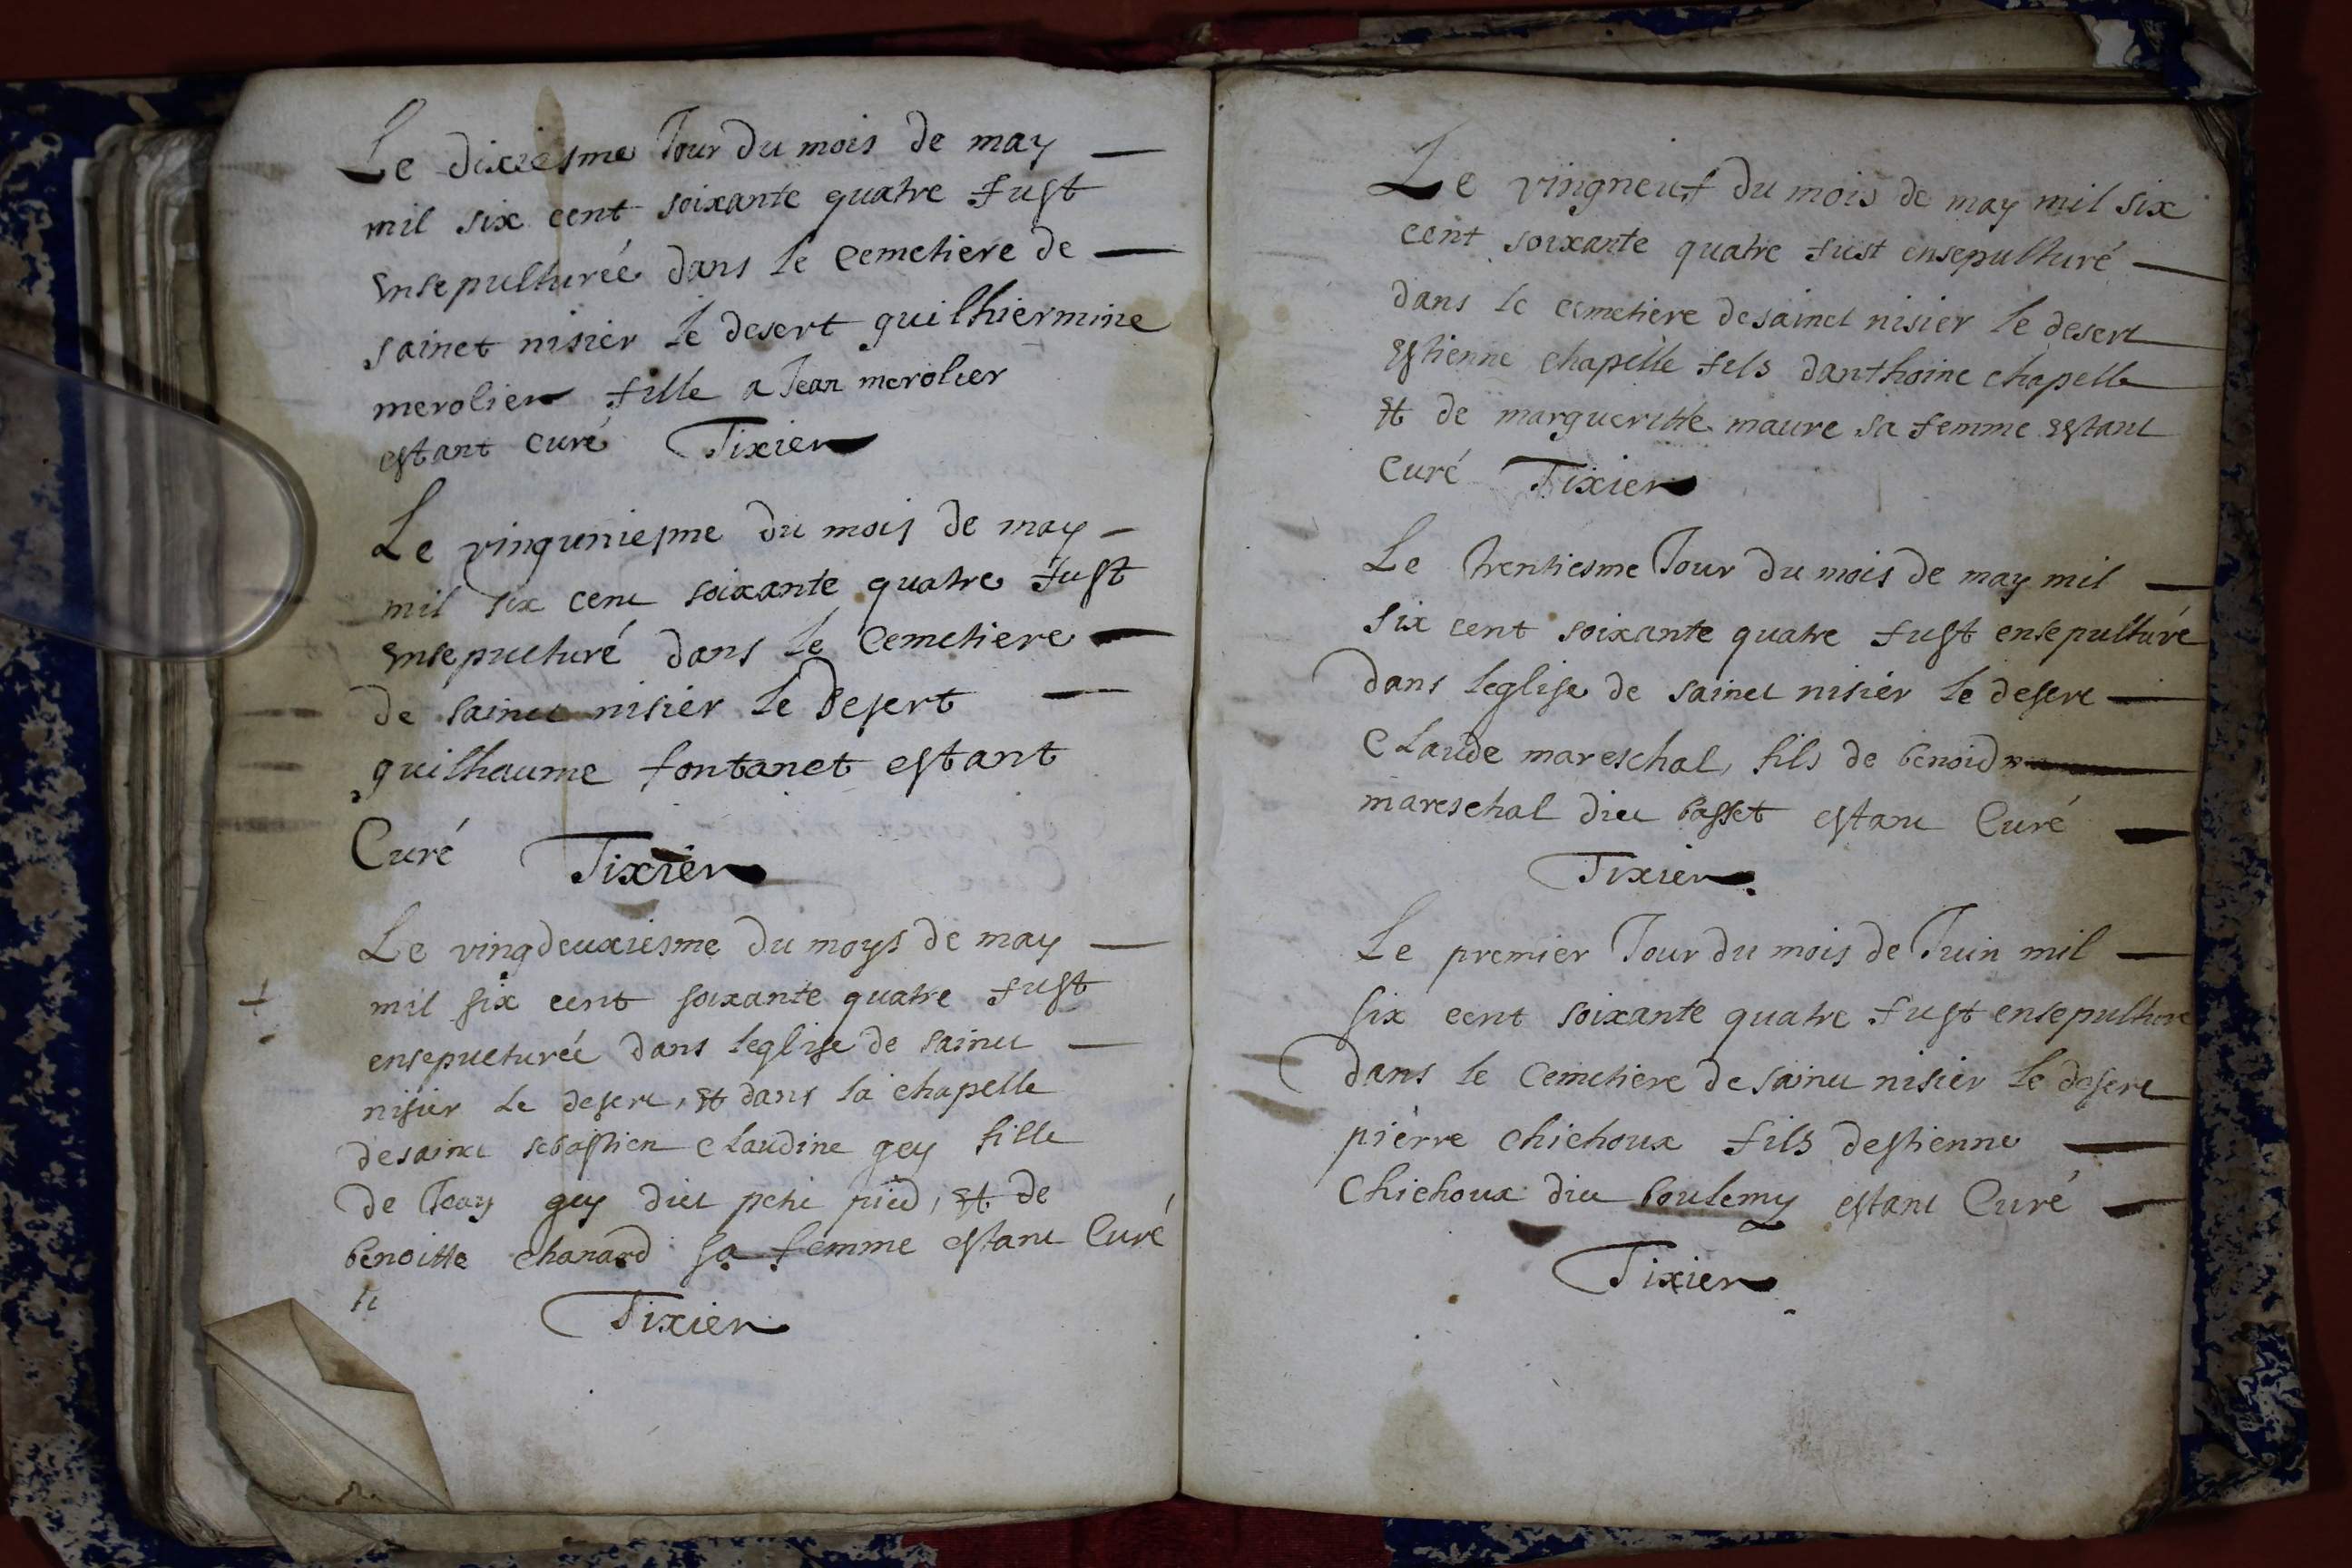 Le dixiesme Jour Du mois de may —
mil six cent soixante quatre fust
ensepulturée dans le Cemetiere de —
sainct nisier le desert guilhiermine
merolier fille a Jean merolier
estant curé Tixier
Le vinguniesme du mois de may —
mil six cent soixante quatre fust
ensepulturé dans le Cemetiere —
de sainct nisier le Desert —
guilhaume fontanet estant
Curé Tixier
Le vingdeuxiesme du moys de may —
+ mil six cent soixante quatre fust
ensepulturée dans leglise de sainct —
nisier le desert, et dans la chapelle
de sainct sebastien Claudine gey fille
de Jean gey dict petit pied, et de
benoitte chanard sa femme estant Curé
Tixier
Le vingneuf du mois de may mil six
cent soixante quatre fust ensepulturé —
dans le cemetiere de sainct nisier le desert
Estienne chapelle fils danthoine chapelle
et de margueritte maure sa femme estant
Curé Tixier
Le trentiesme Jour du mois de may mil —
six cent soixante quatre fust ensepulturé
dans leglise de sainct nisier le desert —
Claude mareschal, fils de benoid
mareschal dict basset estant Curé —
Tixier
Le premier Jour du mois de Juin mil —
six cent soixante quatre fust ensepulturé
dans le Cemetiere de sainct nisier le desert
pierre chichoux fils destienne —
Chichoux dict boulemy estant Curé —
Tixier